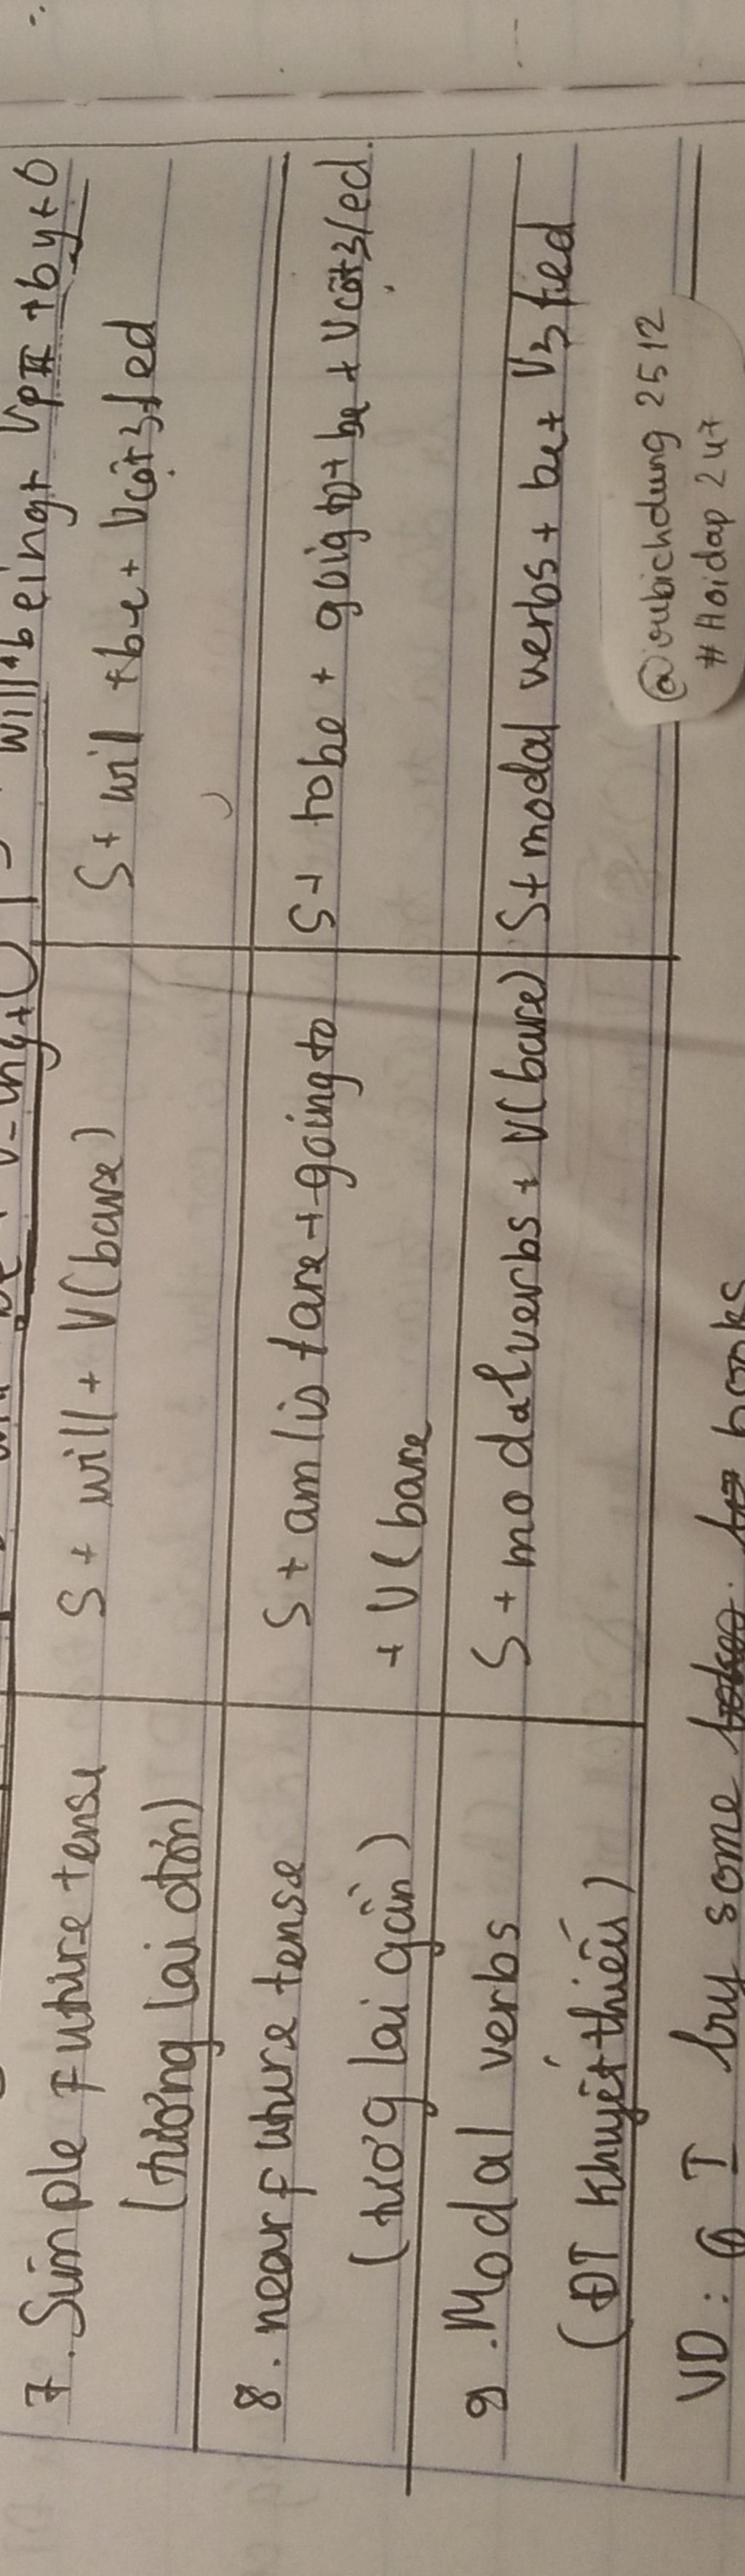 being + VpII + by + O
7. Simple future tense
(tương lai đơn)
S + will + V(bare)
S + will + be + Vcột3/ed
8. near future tense
(tươg lai gần)
S + am/is/are + going to
+ V(bare
S + tobe + goig to + be + Vcột3/ed.
9. Modal verbs
(ĐT khuyết thiếu)
S + modal verbs + V(bare)
S + modal verbs + be + V3/ed
VD: I buy some books
@vubichdung2512
#Hoidap247